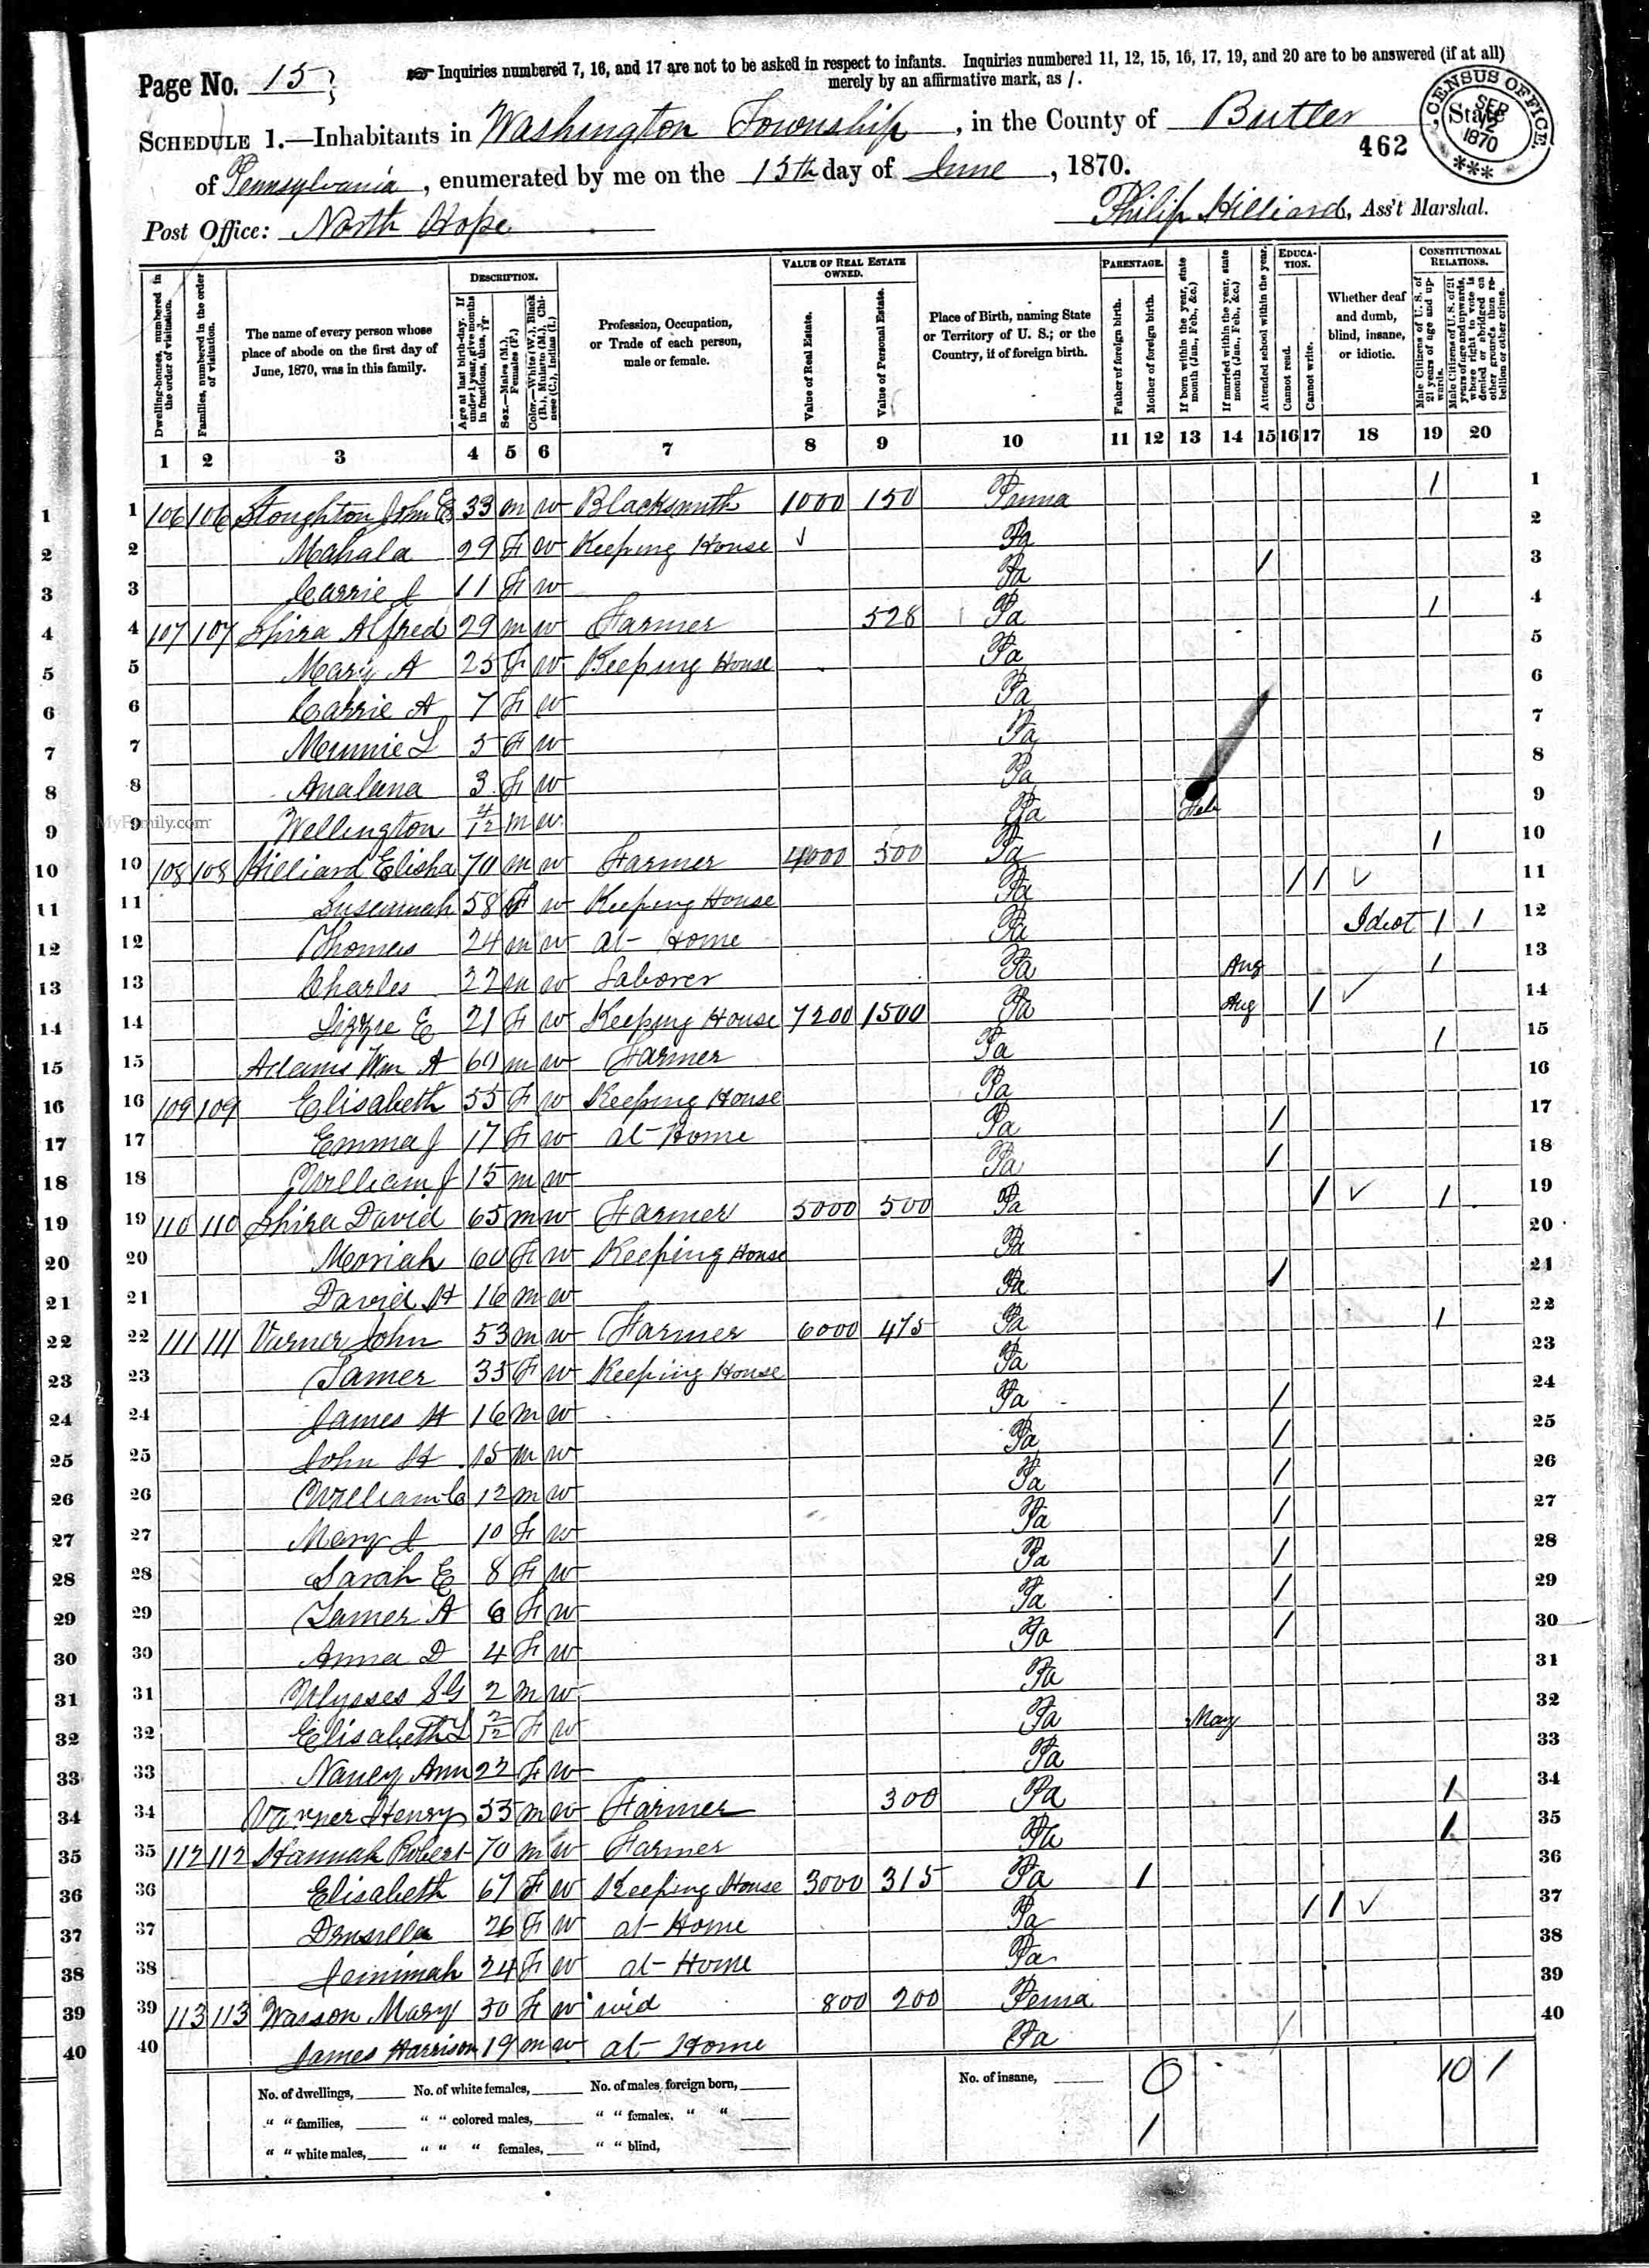 Page No. 15
Inquiries numbered 7, 16, and 17 are not to be asked in respect to infants. Inquiries numbered 11, 12, 15, 16, 17, 19, and 20 are to be answered (if at all)
merely by an affirmative mark, as /.
CENSUS OFFICE SEP 12 1870
SCHEDULE 1.—Inhabitants in Washington Township, in the County of Butler State
462
of Pennsylvania, enumerated by me on the 15th day of June, 1870.
Post Office: North Hope Philip Hilliard, Ass't Marshal.
Dwelling-houses, numbered in the order of visitation.
Families, numbered in the order of visitation.
The name of every person whose place of abode on the first day of June, 1870, was in this family.
DESCRIPTION.
Age at last birth-day. If under 1 year, give months in fractions, thus, 3/12
Sex.—Males (M.), Females (F.)
Color.—White (W.), Black (B.), Mulatto (M.), Chinese (C.), Indian (I.)
Profession, Occupation, or Trade of each person, male or female.
VALUE OF REAL ESTATE OWNED.
Value of Real Estate.
Value of Personal Estate.
Place of Birth, naming State or Territory of U. S.; or the Country, if of foreign birth.
PARENTAGE.
Father of foreign birth.
Mother of foreign birth.
If born within the year, state month (Jan., Feb., &c.)
If married within the year, state month (Jan., Feb., &c.)
Attended school within the year.
EDUCATION.
Cannot read.
Cannot write.
Whether deaf and dumb, blind, insane, or idiotic.
CONSTITUTIONAL RELATIONS.
Male Citizens of U. S. of 21 years of age and upwards.
Male Citizens of U. S. of 21 years of age and upwards, whose right to vote is denied or abridged on other grounds than rebellion or other crime.
1 2 3 4 5 6 7 8 9 10 11 12 13 14 15 16 17 18 19 20
1 106 106 Stoughton John E 33 m w Blacksmith 1000 150 Penna / 1
2 Mahala 29 F w Keeping House √ Pa 2
3 Carrie J 11 F w Pa / 3
4 107 107 Shira Alfred 29 m w Farmer 528 Pa / 4
5 Mary A 25 F w Keeping House Pa 5
6 Carrie A 7 F w Pa 6
7 Minnie L 5 F w Pa 7
8 Analana 3 F w Pa 8
MyFamily.com
9 Wellington 4/12 m w Pa Feb 9
10 108 108 Hilliard Elisha 70 m w Farmer 4000 500 Pa / 10
11 Susannah 58 F w Keeping House Pa / / √ 11
12 Thomas 24 m w at Home Pa Idiot / / 12
13 Charles 22 m w Laborer Pa Aug / 13
14 Lizzie E 21 F w Keeping House 7200 1500 Pa Aug / √ 14
15 Adams Wm A 60 m w Farmer Pa / 15
16 109 109 Elisabeth 55 F w Keeping House Pa 16
17 Emma J 17 F w at Home Pa / 17
18 William J 15 m w Pa / 18
19 110 110 Shira David 65 m w Farmer 5000 500 Pa / √ / 19
20 Moriah 60 F w Keeping House Pa 20
21 David H 16 m w Pa / 21
22 111 111 Varner John 53 m w Farmer 6000 475 Pa / 22
23 Tamer 35 F w Keeping House Pa 23
24 James H 16 m w Pa / 24
25 John H 15 m w Pa / 25
26 William C 12 m w Pa / 26
27 Mary J 10 F w Pa / 27
28 Sarah E 8 F w Pa / 28
29 Tamer A 6 F w Pa / 29
30 Anna D 4 F w Pa / 30
31 Ulysses S G 2 m w Pa 31
32 Elisabeth L 2/12 F w Pa May 32
33 Nancy Ann 22 F w Pa 33
34 Varner Henry 55 m w Farmer 300 Pa / 34
35 112 112 Hannah Robert 70 m w Farmer Pa / 35
36 Elisabeth 67 F w Keeping House 3000 315 Pa / 36
37 Drusilla 26 F w at Home Pa / / √ 37
38 Jemimah 24 F w at Home Pa 38
39 113 113 Wasson Mary 50 F w wid 800 200 Penna 39
40 James Harrison 19 m w at Home Pa / 40
No. of dwellings, No. of white females, No. of males, foreign born, No. of insane, 0 10 1
" " families, " " colored males, " " females, " "
" " white males, " " " females, " " blind, 1